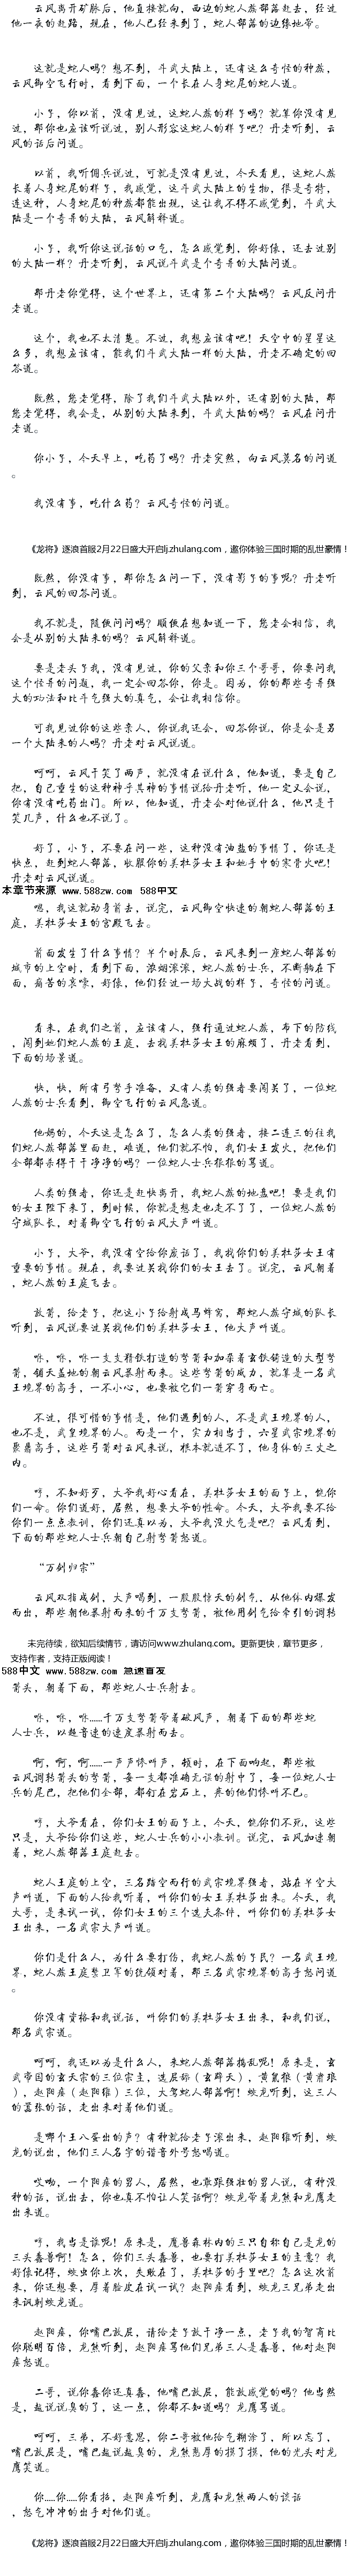 云风出开矿脉后，他直接就向，西边的蛇人族部落赶去，经过
他一夜的赶路，现在，他人已经来到了，蛇人部落的边缘地带。
这就是蛇人吗？想不到，斗武大陆上，还有这么奇怪的种族，
云风御空飞行时，看到下面，一个长在人身蛇尾的蛇人道。
小子，你以前，没有见过，这蛇人族的样子吗？就算你没有见
过，那你也应该听说过，别人形容这蛇人的样子吧？丹老听到，云
风的话后问道。
以前，我听佣兵说过，可就是没有见过，今天看见，这蛇人族
长着人身蛇尾的样子，我感觉，这斗武大陆上的生物，很是奇特，
连这种，人身蛇尾的种族都能出现，这让我不得不感觉到，斗武大
陆是一个奇异的大陆，云风解释道。
小子，我听你这说话的口气，怎么感觉到，你好像，还去过别
的大陆一样？丹老听到，云风说斗武是个奇异的大陆问道。
那丹老你觉得，这个世界上，还有第二个大陆吗？云风反问丹
老道。
这个，我也不太清楚。不过，我想应该有吧！天空中的星星这
么多，我想应该有，能我们斗武大陆一样的大陆，丹老不确定的回
答道。
既然，您老觉得，除了我们斗武大陆以外，还有别的大陆，那
您老觉得，我会是，从别的大陆来到，斗武大陆的吗？云风在问丹
老道。
你小子，今天早上，吃药了吗？丹老突然，向云风莫名的问道
。
我没有事，吃什么药？云风奇怪的问道。
《龙将》逐浪首服2月22日盛大开启lj.zhulang.com，邀你体验三国时期的乱世豪情！
既然，你没有事，那你怎么问一下，没有影子的事呢？丹老听
到，云风的回答问道。
我不就是，随便问问吗？顺便在想知道一下，您老会相信，我
会是从别的大陆来的吗？云风解释道。
要是老头子我，没有见过，你的父亲和你三个哥哥，你要问我
这个怪异的问题，我一定会回答你，你是。因为，你的那些奇异强
大的功法和比斗气强大的真气，会让我相信你。
可我见过你的这些亲人，你说我还会，回答你说，你是会是另
一个大陆来的人吗？丹老对云风说道。
呵呵，云风干笑了两声，就没有在说什么，他知道，要是自己
把，自己重生的这种神乎其神的事情说给丹老听，他一定又会说，
你有没有吃药出门。所以，他知道，丹老会对他说什么，他只是干
笑几声，什么也不说了。
好了，小子，不要在问一些，这种没有油盐的事情了，你还是
快点，赶到蛇人部落，收服你的美杜莎女王和她手中的寒骨火吧！
丹老对云风说道。
本章节来源 www.588zw.com 588中文
嗯，我这就动身前去，说完，云风御空快速的朝蛇人部落的王
庭，美杜莎女王的宫殿飞去。
前面发生了什么事情？半个时辰后，云风来到一座蛇人部落的
城市的上空时，看到下面，浓烟滚滚，蛇人族的士兵，不断躺在下
面，痛苦的哀嚎，好像，他们经过一场大战的样子，奇怪的问道。
看来，在我们之前，应该有人，强行通过蛇人族，布下的防线
，闯到她们蛇人族的王庭，去找美杜莎女王的麻烦了，丹老看到，
下面的场景道。
快，快，所有弓弩手准备，又有人类的强者要闯关了，一位蛇
人族的士兵看到，御空飞行的云风急道。
他妈的，今天这是怎么了，怎么人类的强者，接二连三的往我
们蛇人族部落里面赶，难道，他们就不怕，我们女王发火，把他们
全部都杀得干干净净的吗？一位蛇人士兵狠狠的骂道。
人类的强者，你还是赶快离开，我蛇人族的地盘吧！要是我们
的女王陛下来了，到时候，你就是想走也走不了了，一位蛇人族的
守城队长，对着御空飞行的云风大声叫道。
小子，大爷，我没有空给你废话了，我找你们的美杜莎女王有
重要的事情。现在，我要过关找你们的女王去了。说完，云风朝着
，蛇人族的王庭飞去。
放箭，给老子，把这小子给射成马蜂窝，那蛇人族守城的队长
听到，云风说要过关找他们的美杜莎女王，他大声叫道。
咻，咻，咻一支支精铁打造的弩箭和加杂着玄铁铸造的大型弩
箭，铺天盖地的朝云风暴射而来。这些弩箭的威力，就算是一名武
王境界的高手，一不小心，也要被它们一箭穿身而亡。
不过，很可惜的事情是，他们遇到的人，不是武王境界的人，
也不是，武皇境界的人。而是一个，实力相当于，六星武宗境界的
聚凝高手，这些弓箭对云风来说，根本就近不了，他身体的三丈之
内。
哼，不知好歹，大爷我好心看在，美杜莎女王的面子上，饶你
们一命。你们道好，居然，想要大爷的性命。今天，大爷我要不给
你们一点点教训，你们还真以为，大爷我没火气是吧？云风看到，
下面的那些蛇人士兵朝自己射弩箭怒道。
“万剑归宗”
云风双指成剑，大声喝到，一股股惊天的剑气，从他体内爆发
而出，那些朝他暴射而来的千万支弩箭，被他用剑气给牵引的调转
未完待续，欲知后续情节，请访问www.zhulang.com。更新更快，章节更多，
支持作者，支持正版阅读！
588中文 www.588zw.com 急速首发
箭头，朝着下面，那些蛇人士兵射去。
咻，咻，咻……千万支弩箭带着破风声，朝着下面的那些蛇
人士兵，以超音速的速度暴射而去。
啊，啊，啊……一声声惨叫声，顿时，在下面响起，那些被
云风调转箭头的弩箭，每一支都准确无误的射中了，每一位蛇人士
兵的尾巴，把他们全部，都钉在岩石上，疼的他们惨叫不已。
哼，大爷看在，你们女王的面子上，今天，饶你们不死，这些
只是，大爷给你们这些，蛇人士兵的小小教训。说完，云风加速朝
着，蛇人族部落王庭赶去。
蛇人王庭的上空，三名踏空而行的武宗境界强者，站在半空大
声叫道，下面的人给我听着，叫你们的女王美杜莎出来。今天，我
大哥，是来试一试，你们女王的三个选夫条件，叫你们的美杜莎女
王出来，一名武宗大声叫道。
你们是什么人，为什么要打伤，我蛇人族的子民？一名武王境
界，蛇人族王庭禁卫军的统领对着，那三名武宗境界的高手怒问道
。
你没有资格和我说话，叫你们的美杜莎女王出来，和我们说，
那名武宗道。
呵呵，我还以为是什么人，来蛇人族部落捣乱呢！原来是，玄
武帝国的玄天宗的三位宗主，选屁颠（玄辟天），黄鼠狼（黄肃琅
），赵阳痿（赵阳维）三位，大驾蛇人部落啊！蛟龙听到，这三人
的嚣张的话，走出来对着他们道。
是哪个王八蛋出的声？有种就给老子滚出来，赵阳维听到，蛟
龙的说出，他们三人名字的谐音外号怒喝道。
哎呦，一个阳痿的男人，居然，也靠跟强壮的男人说，有种没
种的话，说出去，你也真不怕让人笑话啊？蛟龙带着龙熊和龙鹰走
出来道。
哼，我当是谁呢！原来是，魔兽森林内的三只自称自己是龙的
三头畜兽啊！怎么，你们三头畜兽，也要打美杜莎女王的主意？我
好像记得，蛟虫你上次，失败在了，美杜莎的手里吧？怎么这次前
来，你还想要，厚着脸皮在试一试？赵阳痿看到，蛟龙三兄弟走出
来讽刺蛟龙道。
赵阳痿，你嘴巴放屁，请给老子放干净一点，老子我的智商比
你聪明百倍，龙熊听到，赵阳痿骂他们兄弟三人是畜兽，他对赵阳
痿怒道。
二哥，说你畜你还真畜，他嘴巴放屁，能放感觉的吗？他当然
是，越说说臭的了，这一点，你都不知道吗？龙鹰骂道。
呵呵，三弟，不好意思，你二哥被他给气糊涂了，所以忘了，
嘴巴放屁是，嘴巴越说越臭的，龙熊憨厚的摸了摸，他的光头对龙
鹰笑道。
你……你……你看招，赵阳痿听到，龙鹰和龙熊两人的谈话
，怒气冲冲的出手对他们道。
《龙将》逐浪首服2月22日盛大开启lj.zhulang.com，邀你体验三国时期的乱世豪情！